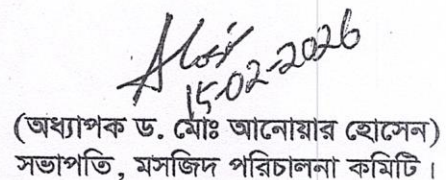 15-02-2026
(অধ্যাপক ড. মোঃ আনোয়ার হোসেন)
সভাপতি, মসজিদ পরিচালনা কমিটি।